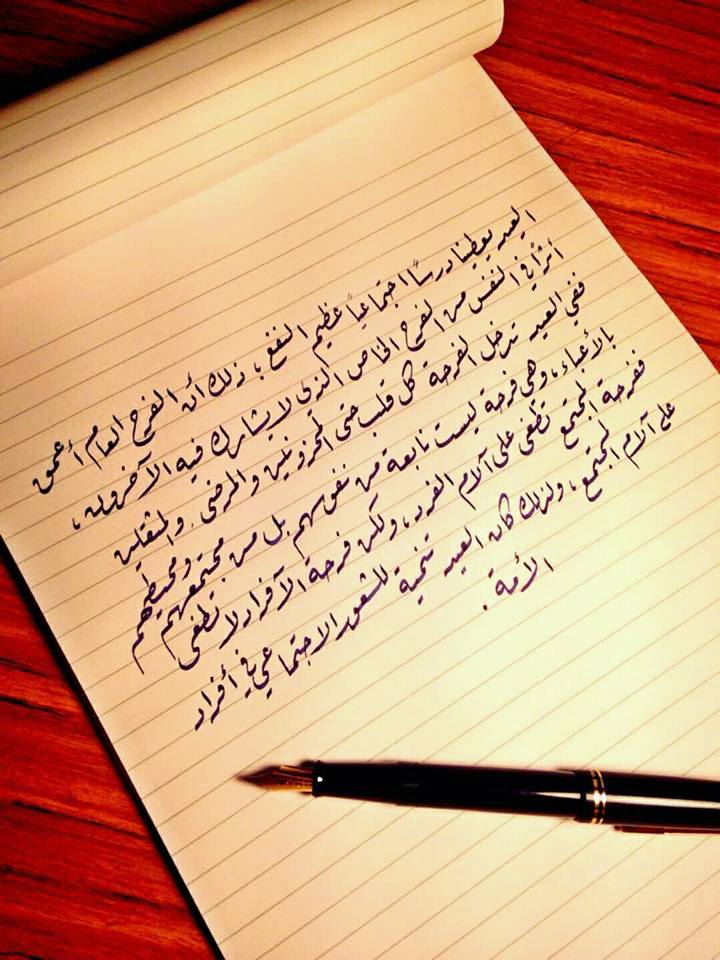 العيد يعطينا درساً اجتماعياً عظيم النفع، ذلك أن الفرح العام أعمق
أثراً في النفس من الفرح الخاص الذي لا يشارك فيه الآخرون،
ففي العيد تدخل الفرحة كل قلب حتى المحزونين والمرضى والمثقلين
بالأعباء، وهي فرحة ليست نابعة من نفوسهم بل من مجتمعهم ومحيطهم
ففرحة المجتمع تطغى على آلام الفرد، ولكن فرحة الأفراد لا تطغى
على آلام المجتمع، ولذلك كان العيد تنمية للشعور الاجتماعي في أفراد
الأمة.